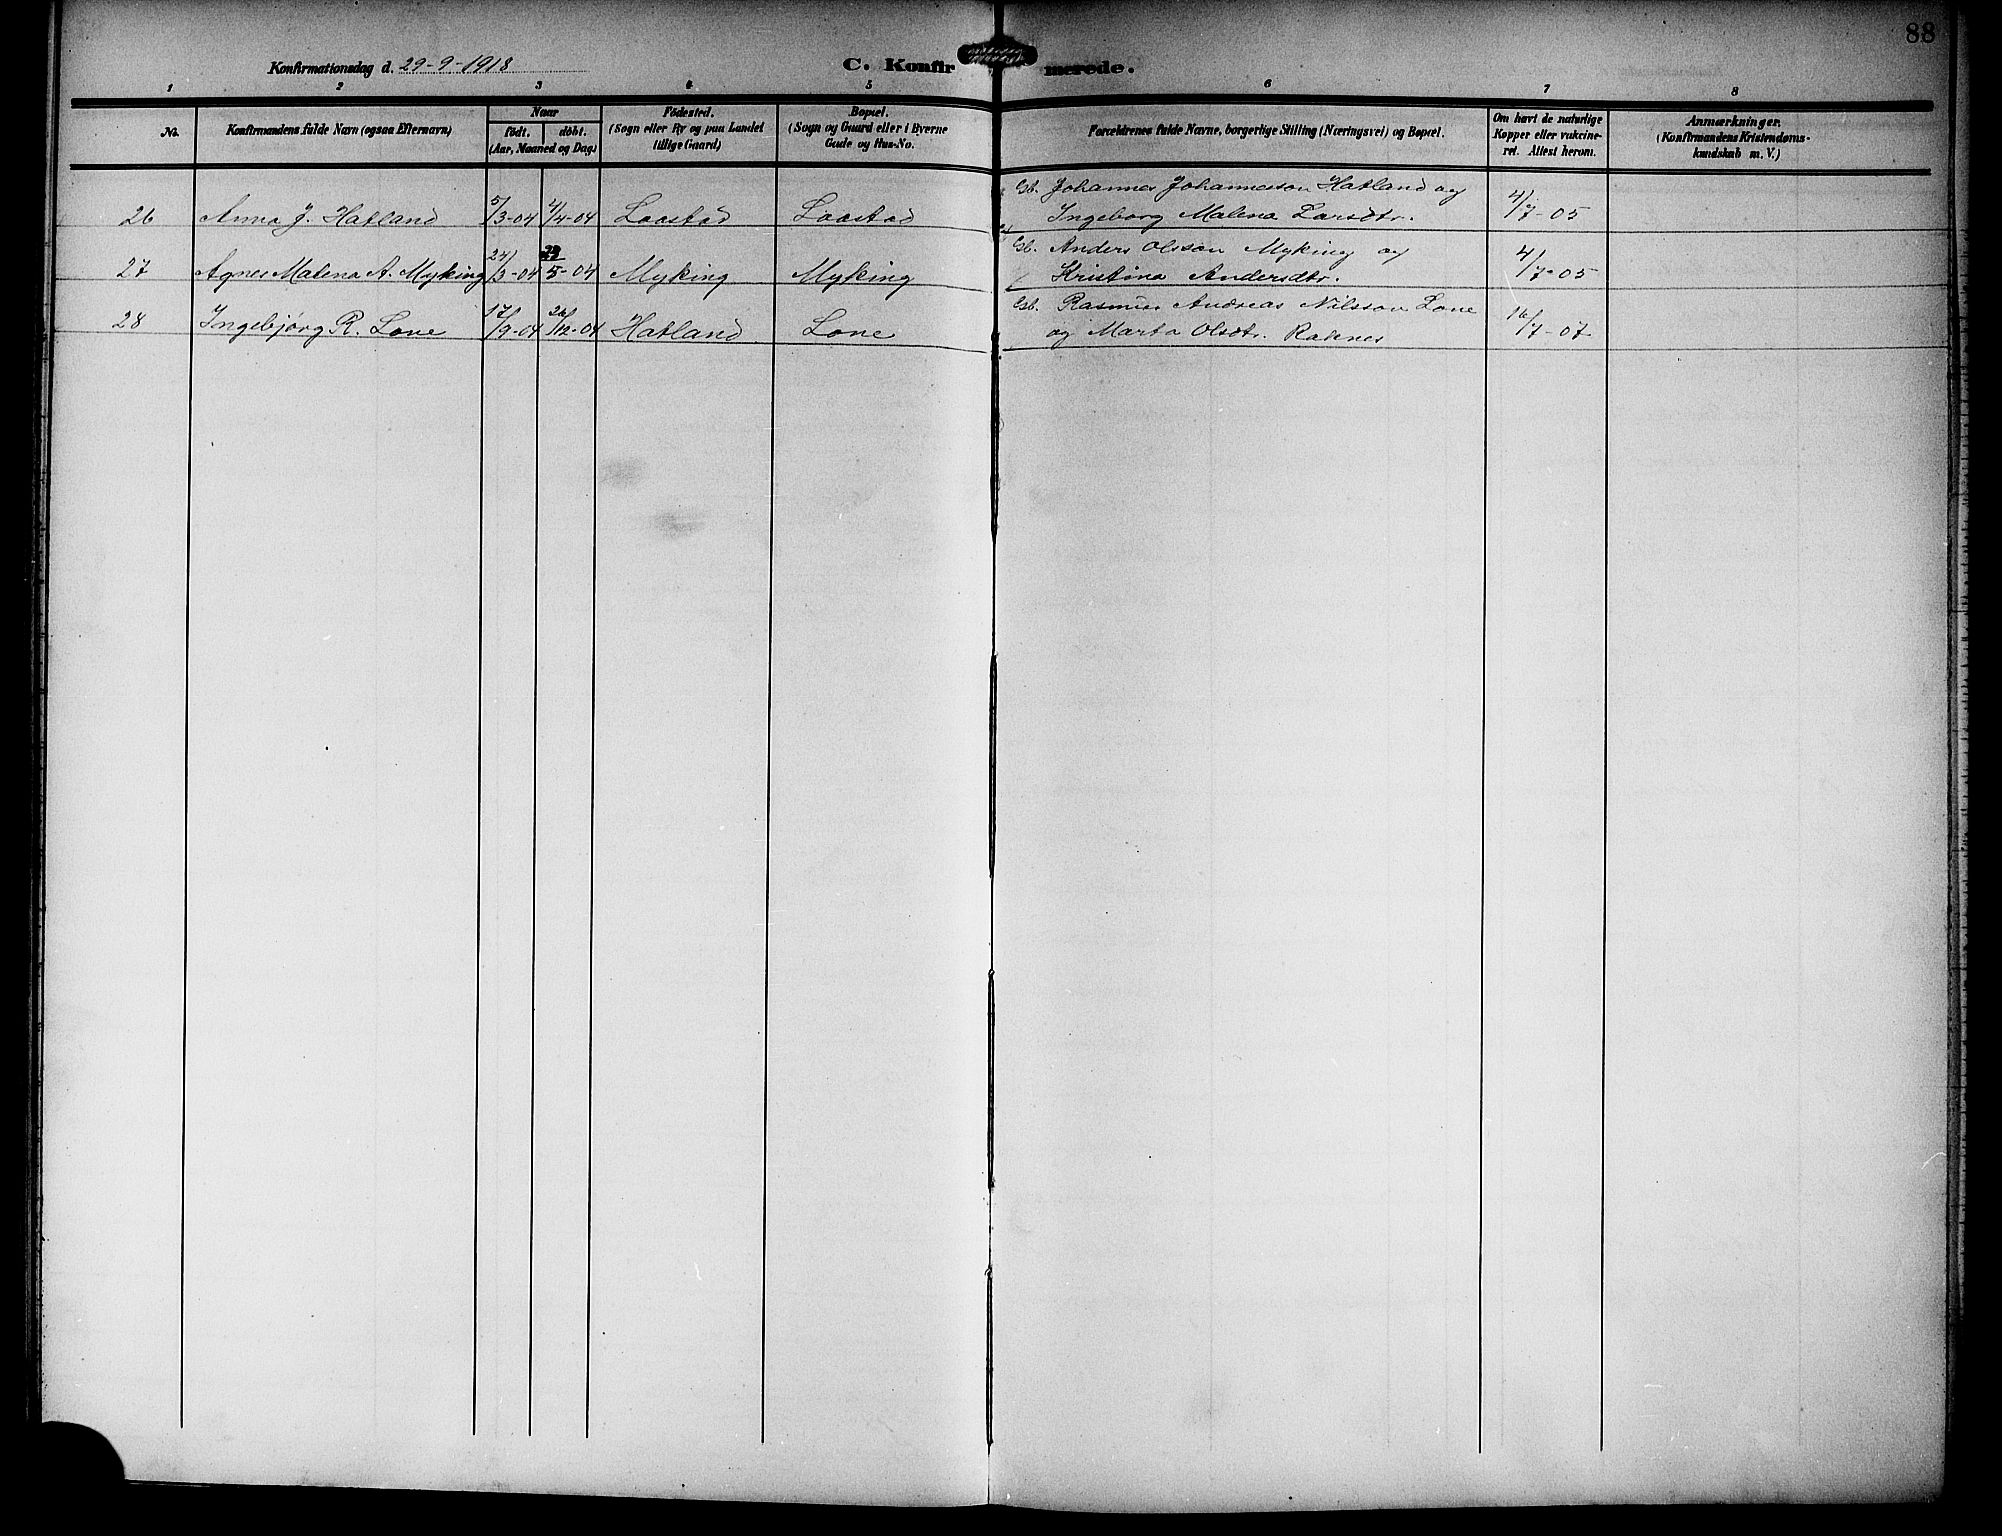 88
Konfirmationsdag d. 29-9-1918
C. Konfirmerede.
1 2 3 4 5 6 7 8
No. Konfirmandens fulde Navn (ogsaa Efternavn)
Naar
födt. döbt.
(Aar, Maaned og Dag)
Födested.
(Sogn eller By og paa Landet
tillige Gaard)
Bopæl.
(Sogn og Gaard eller i Byerne
Gade og Hus-No.
Forældrenes fulde Navne, borgerlige Stilling (Næringsvei) og Bopæl.
Om havt de naturlige
Kopper eller vakcine-
ret. Attest herom.
Anmærkninger.
(Konfirmandens Kristendoms-
kundskab m. V.)
Gb. Johannes Johannesson Hatland og
26 Anna J. Hatland 5/3-04 4/4-04 Laastad Laastad Ingeborg Malena Larsdtr. 4/7-05
Gb. Anders Olsson Myking og
27 Agnes Malena A. Myking 24/3-04 5-04 Myking Myking Kristina Andersdtr. 4/7-05
Gb. Rasmus Andreas Nilsson Lone
28 Ingebjørg R. Lone 17/9-04 26/12-04 Hatland Lone og Marta Olsdtr. Raknes 16/7-07